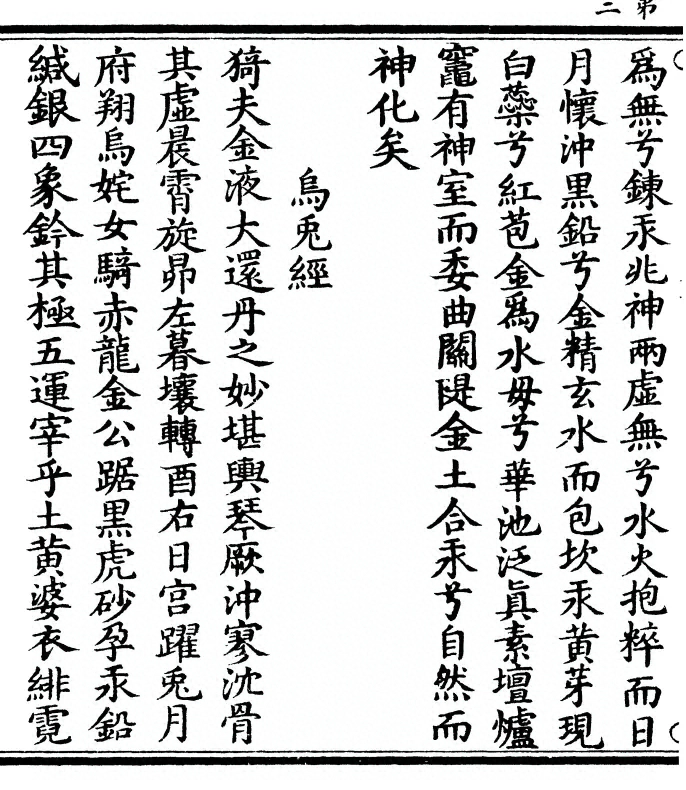 第二
爲無兮鍊汞兆神兩虛無兮水火抱粹而日
月懷沖黒鉛兮金精玄水而包坎汞黃芽現
白蘂兮紅苞金爲水毋兮華池泛眞素壇爐
竈有神室而委曲關隄金土合汞兮自然而
神化矣
烏兎經
猗夫金液大還丹之妙堪輿琴厥沖寥沈骨
其虛晨霄旋昴左暮壤轉酉右日宮躍兎月
府翔烏姹女騎赤龍金公踞黒虎砂孕汞鉛
緘銀四象鈐其極五運宰乎土黃婆衣緋霓